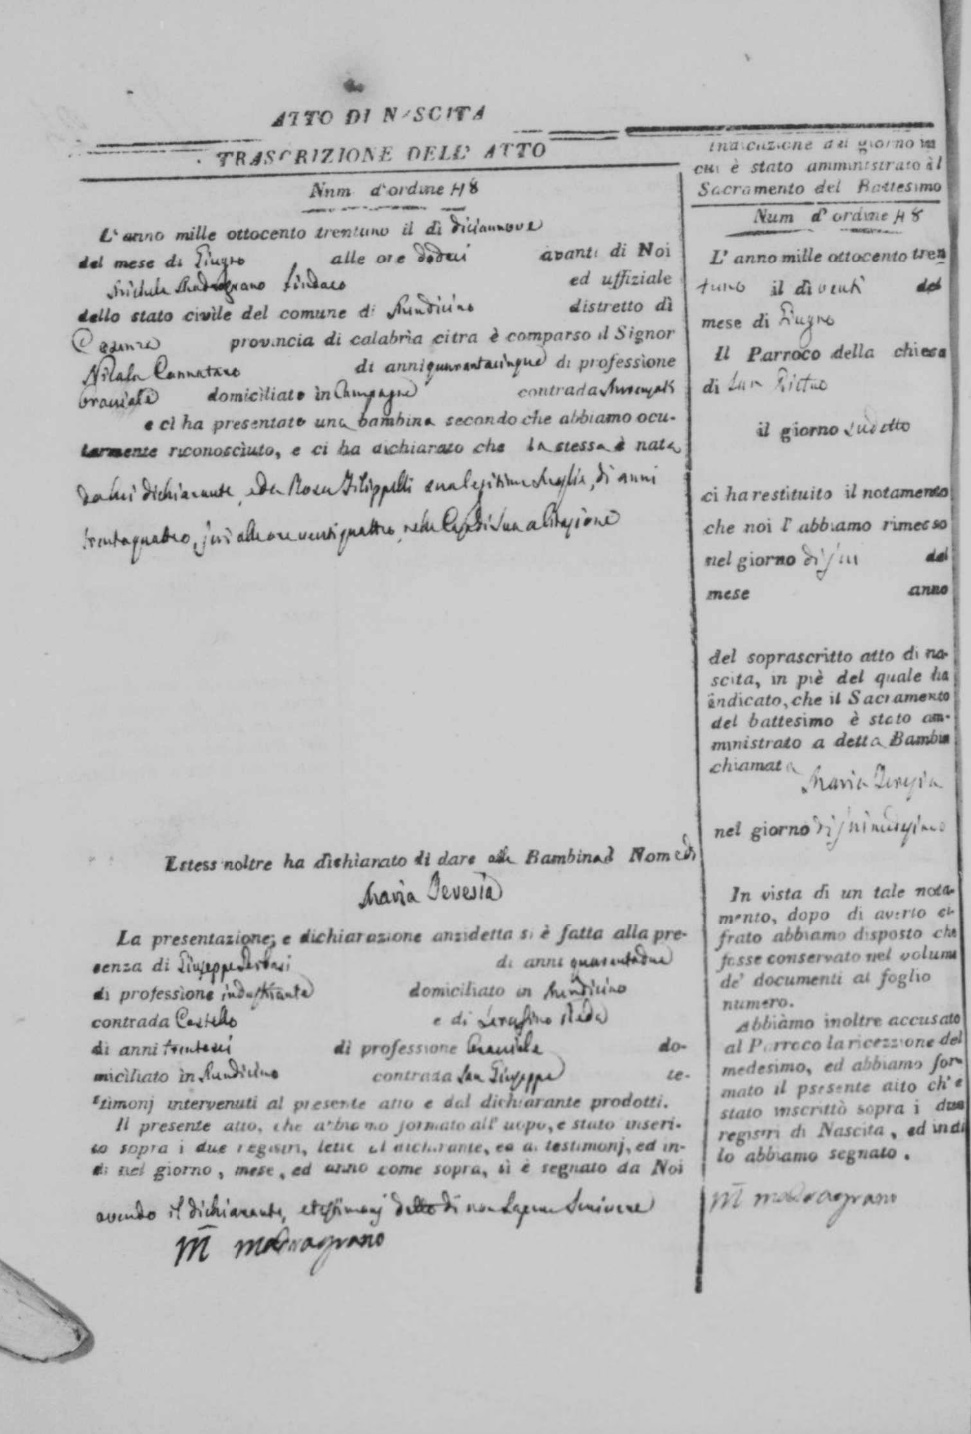 ATTO DI NASCITA
TRASCRIZIONE DELL' ATTO
Num d'ordine 48
L' anno mille ottocento trentuno il dì diciannove
del mese di Giugno alle ore dodeci avanti di Noi
Michele Madragrano Sindaco ed uffiziale
dello stato civile del comune di Mendicino distretto di
Cosenza provincia di calabria citra è comparso il Signor
Nicola Cannataro di anni quarantacinque di professione
bracciale domiciliato in Campagna contrada
e ci ha presentato una bambina secondo che abbiamo ocu-
larmente riconosciuto, e ci ha dichiarato che la stessa è nata
da lui dichiarante, e da Rosa Filippelli sua legitima Moglie, di anni
trentaquattro, jeri alle ore ventiquattro, nella Casa di Sua abitazione
Lo stess noltre ha dichiarato di dare alla Bambina il Nome di
Maria Teresia
La presentazione, e dichiarazione anzidetta si è fatta alla pre-
senza di Giuseppe di anni quarantadue
di professione industriante domiciliato in Mendicino
contrada Castello e di Serafino Reda
di anni trentasei di professione bracciale do-
miciliato in Mendicino contrada San Giuseppe te-
stimonj intervenuti al presente atto e dal dichiarante prodotti.
Il presente atto, che abbiamo formato all' uopo, e stato inseri-
to sopra i due registri, letto al dichirante, ed ai testimonj, ed in-
di nel giorno, mese, ed anno come sopra, si è segnato da Noi
avendo il dichiarante, e testimonj detto di non Sapere Scrivere
M Madragrano
Indicazione del giorno in
cui è stato amministrato il
Sacramento del Battesimo
Num d' ordine 48
L' anno mille ottocento tren
tuno il dì venti del
mese di Giugno
Il Parroco della chiesa
di San Pietro
il giorno sudetto
ci ha restituito il notamento
che noi l' abbiamo rimesso
nel giorno di jeri del
mese anno
del soprascritto atto di na-
scita, in piè del quale ha
indicato, che il Sacramento
del battesimo è stato am-
ministrato a detta Bambina
chiamata
Maria Teresia
nel giorno di jeri medesimo
In vista di un tale nota-
mento, dopo di averlo ci-
frato abbiamo disposto che
fosse conservato nel volume
de' documenti al foglio
numero.
Abbiàmo inoltre accusato
al Parroco la ricezzione del
medesimo, ed abbiamo for-
mato il psesente atto ch' è
stato inscrittò sopra i due
registri di Nascita, ed indi
lo abbiamo segnato.
M Madragrano